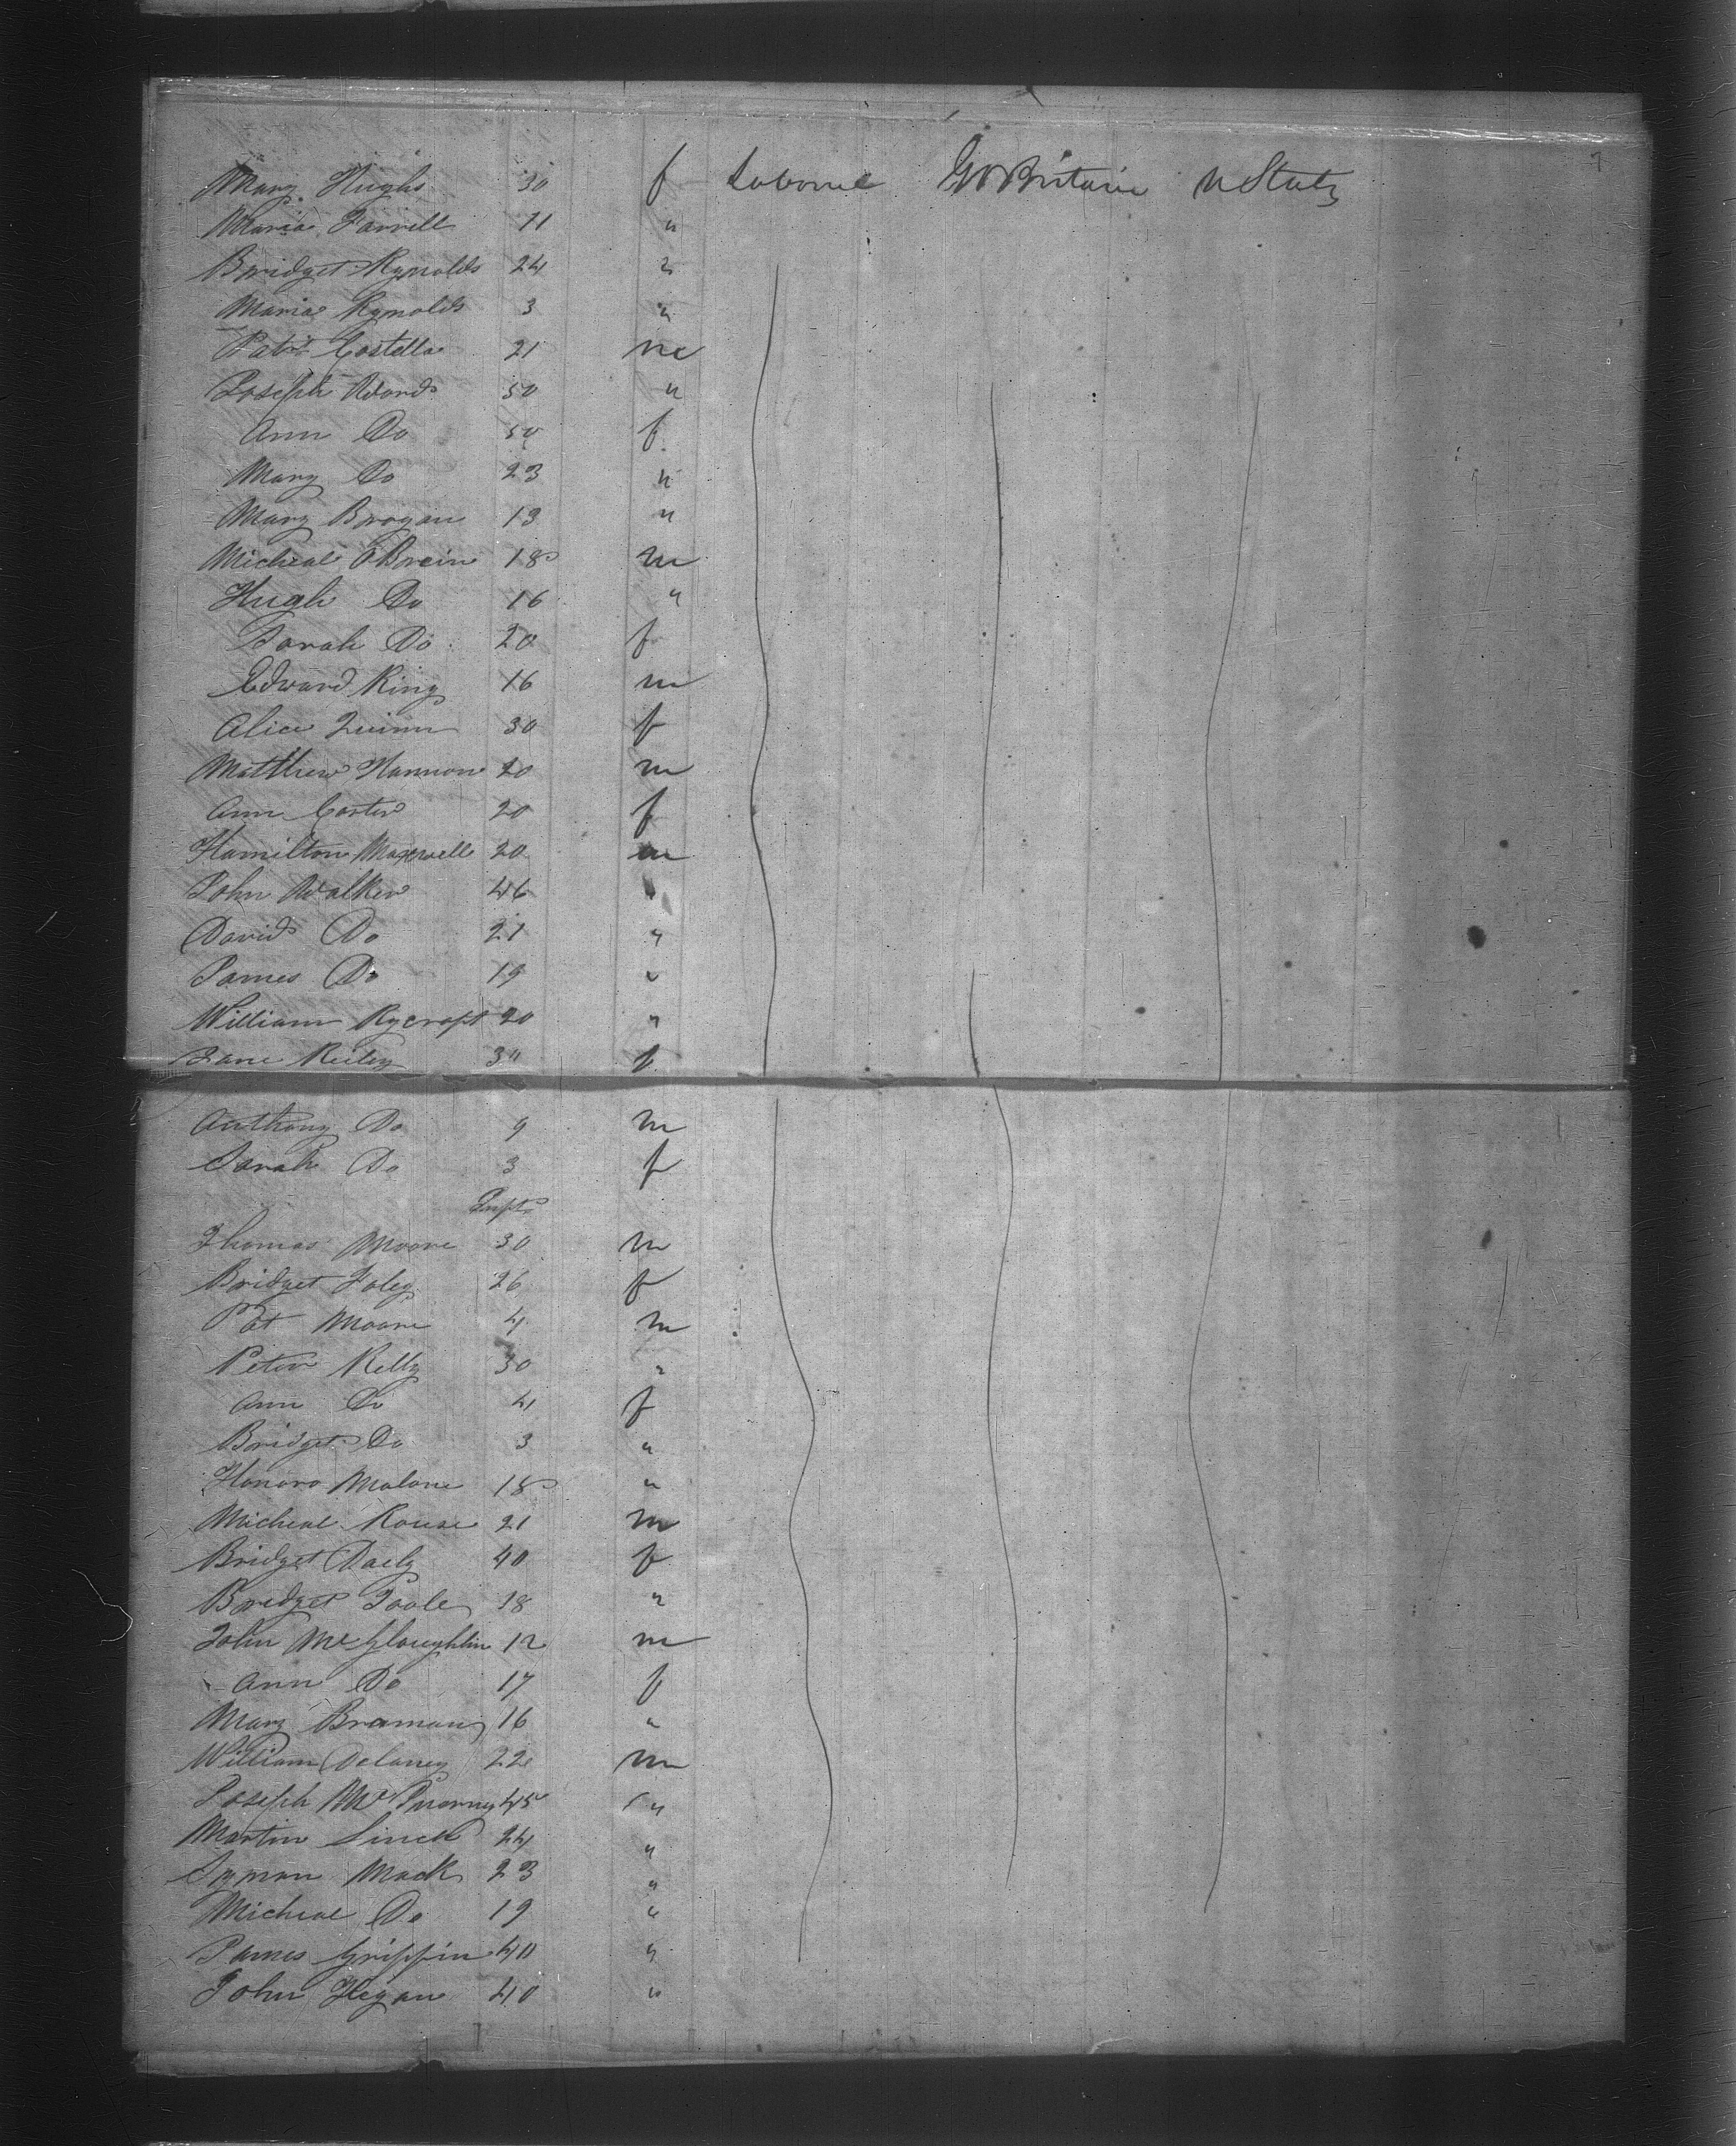 Mary Hughs 30 f Laborer Gt Britain U States
Maria Farrell 11 "
Bridget Rynolds 24 "
Maria Rynolds 3 "
Patk Costello 21 m
Joseph Ward 50 "
Ann Do 50 f
Mary Do 23 "
Mary Brogan 13 "
Micheal OBrein 18 m
Hugh Do 16 "
Sarah Do 20 f
Edward King 16 m
Alice Quinn 30 f
Matthew Hannon 20 m
Ann Carter 20 f
Hamilton Maxwell 20 m
John Walker 46 "
David Do 21 "
James Do 19 "
William Rycroft 20 "
Jane Reiley 30 f
Anthony Do 9 m
Sarah Do 3 f
Inft
Thomas Moore 30 m
Bridget Foley 26 f
Pat Moore 4 m
Peter Kelly 30 "
Ann Do 4 f
Bridget Do 3 "
Honora Malone 18 "
Micheal Rouse 21 m
Bridget Daely 40 f
Bridget Toole 18 "
John McGloughlin 12 m
Ann Do 17 f
Mary Braman 16 "
William Delaney 22 m
Joseph Mc 45 "
Martin Linch 24 "
Syman Mack 23 "
Micheal Do 19 "
James Griffin 40 "
John Hegan 40 "